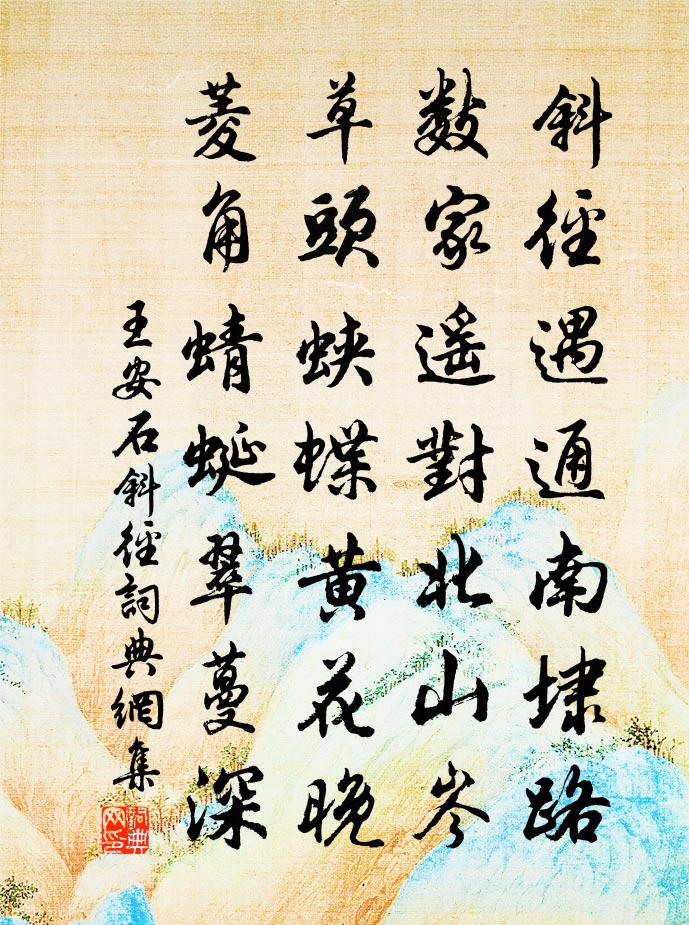 斜徑遇通南埭路
數家遥對北山岑
草頭蛺蝶黃花晚
菱角蜻蜓翠蔓深
王安石斜徑詞典網集
詞典
网印